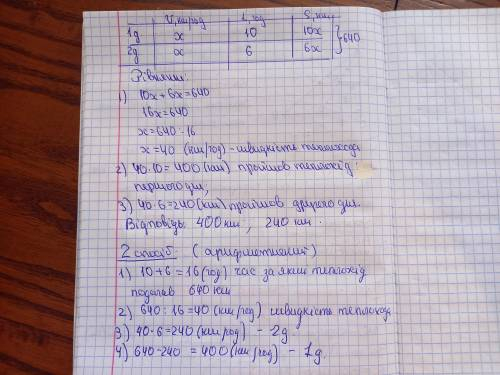 V, км/год t, год S, км
1д x 10 10x
2д x 6 6x } 640
Рівняння:
1) 10x + 6x = 640
16x = 640
x = 640 : 16
x = 40 (км/год) - швидкість теплохода
2) 40·10 = 400 (км) пройшов теплохід
першого дня;
3) 40·6 = 240 (км) пройшов другого дня.
Відповідь: 400 км, 240 км.
2 спосіб: (арифметичний)
1) 10 + 6 = 16 (год) час за який теплохід
подолав 640 км
2) 640 : 16 = 40 (км/год) швидкість теплохода
3) 40·6 = 240 (км/год) - 2д
4) 640 - 240 = 400 (км/год) - 1д.